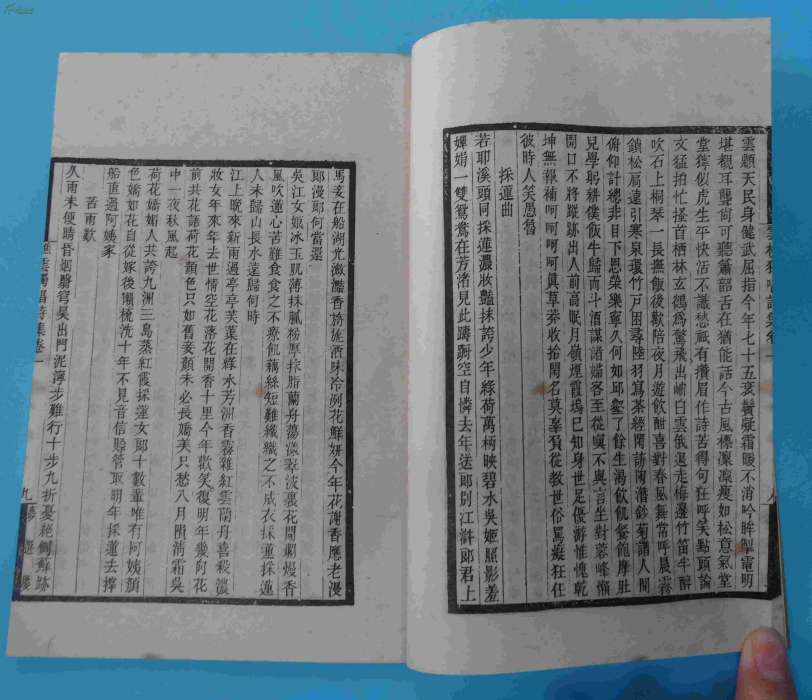 雲顛天民身健武屈指今年七十五衰鬢凝霜暖不消吟眸掣電明
堪覩耳聾尚可聽簫韶舌在猶能話今古風標凜凜瘦如松意氣堂
堂獰似虎生平快活不識愁祇有攢眉作詩苦得句狂呼笑點頭論
文猛拍忙搔首栖林玄鶴為驚飛出岫白雲俄退走梅邊竹笛牛醉
吹石上桐琴一長撫飯後歡陪夜月遊飲酣喜對春風舞常呼晨霧
鎖松扃遠引寒泉環竹戶困尋陸羽寫茶經閒訪陶潛鈔菊譜人間
俯仰計總非目下恩榮樂寧久何如邱壑了餘生渴飲飢餐龍摩肚
兒學躬耕僕飯牛歸而斗酒謀諸婦客至從與不與言坐對蓉峰懶
開口不將蹤跡出人前高眠月鎮煙霞塢已知身世足優游惟愧乾
坤無報補呵呵呵呵真草莽收拾閒名莫辜負從教世俗罵癡狂任
彼時人笑愚魯
採蓮曲
若耶溪頭同採蓮濃妝豔抹誇少年綠荷萬柄映碧水吳姬照影羞
嬋娟一雙鴛鴦在芳渚見此躊躕空自憐去年送郎別江滸郎君上
馬妾在船湖光瀲灩香旖旎酒味冷冽花鮮妍今年花謝香應老漫
郎漫郎何當還
吳江女娥冰玉肌薄抹膩粉厚抹脂蘭舟蕩漾翠波裏花開瀾熳香
風吹蓮心苦難食食之不療飢藕絲短難織織之不成衣採蓮採蓮
人未歸山長水遠歸何時
江上晚來新雨過亭亭芙蕖在綠水芳洲香霧雜紅雲蘭舟喜殺濃
妝女年來年去世情空花落花開香十里今年歡笑復明年幾向花
前共花語荷花顏色只如舊妾顏未必長嬌美只愁八月隕清霜吳
中一夜秋風起
荷花嬌媚人共誇九洲三島蒸紅霞採蓮女郎十數輩唯有阿姨顏
色嬌如花自從嫁後懶梳洗十年不見音信賒管取明年採蓮去撐
船直過阿姨家
苦雨歎
久雨未便晴昏烟翳穹昊出門泥濘步難行十步九折憂絕倒蘇跡
樵雲獨唱詩集卷一
九